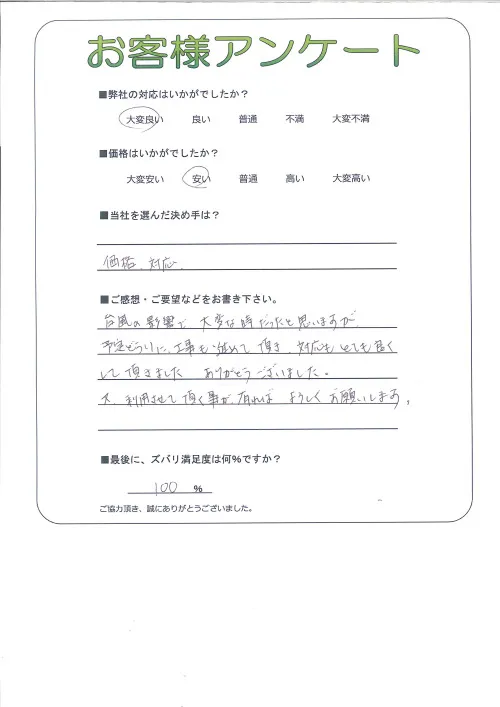 お客様アンケート
■弊社の対応はいかがでしたか？
大変良い 良い 普通 不満 大変不満
■価格はいかがでしたか？
大変安い 安い 普通 高い 大変高い
■当社を選んだ決め手は？
価格、対応、
■ご感想・ご要望などをお書き下さい。
台風の影響で 大変な時だったと思いますが
予定どうりに、工事も進めて頂き、対応もとても良く
して頂きました ありがとうございました。
又、利用させて頂く事が、有れば よろしくお願いします、
■最後に、ズバリ満足度は何%ですか？
100 %
ご協力頂き、誠にありがとうございました。